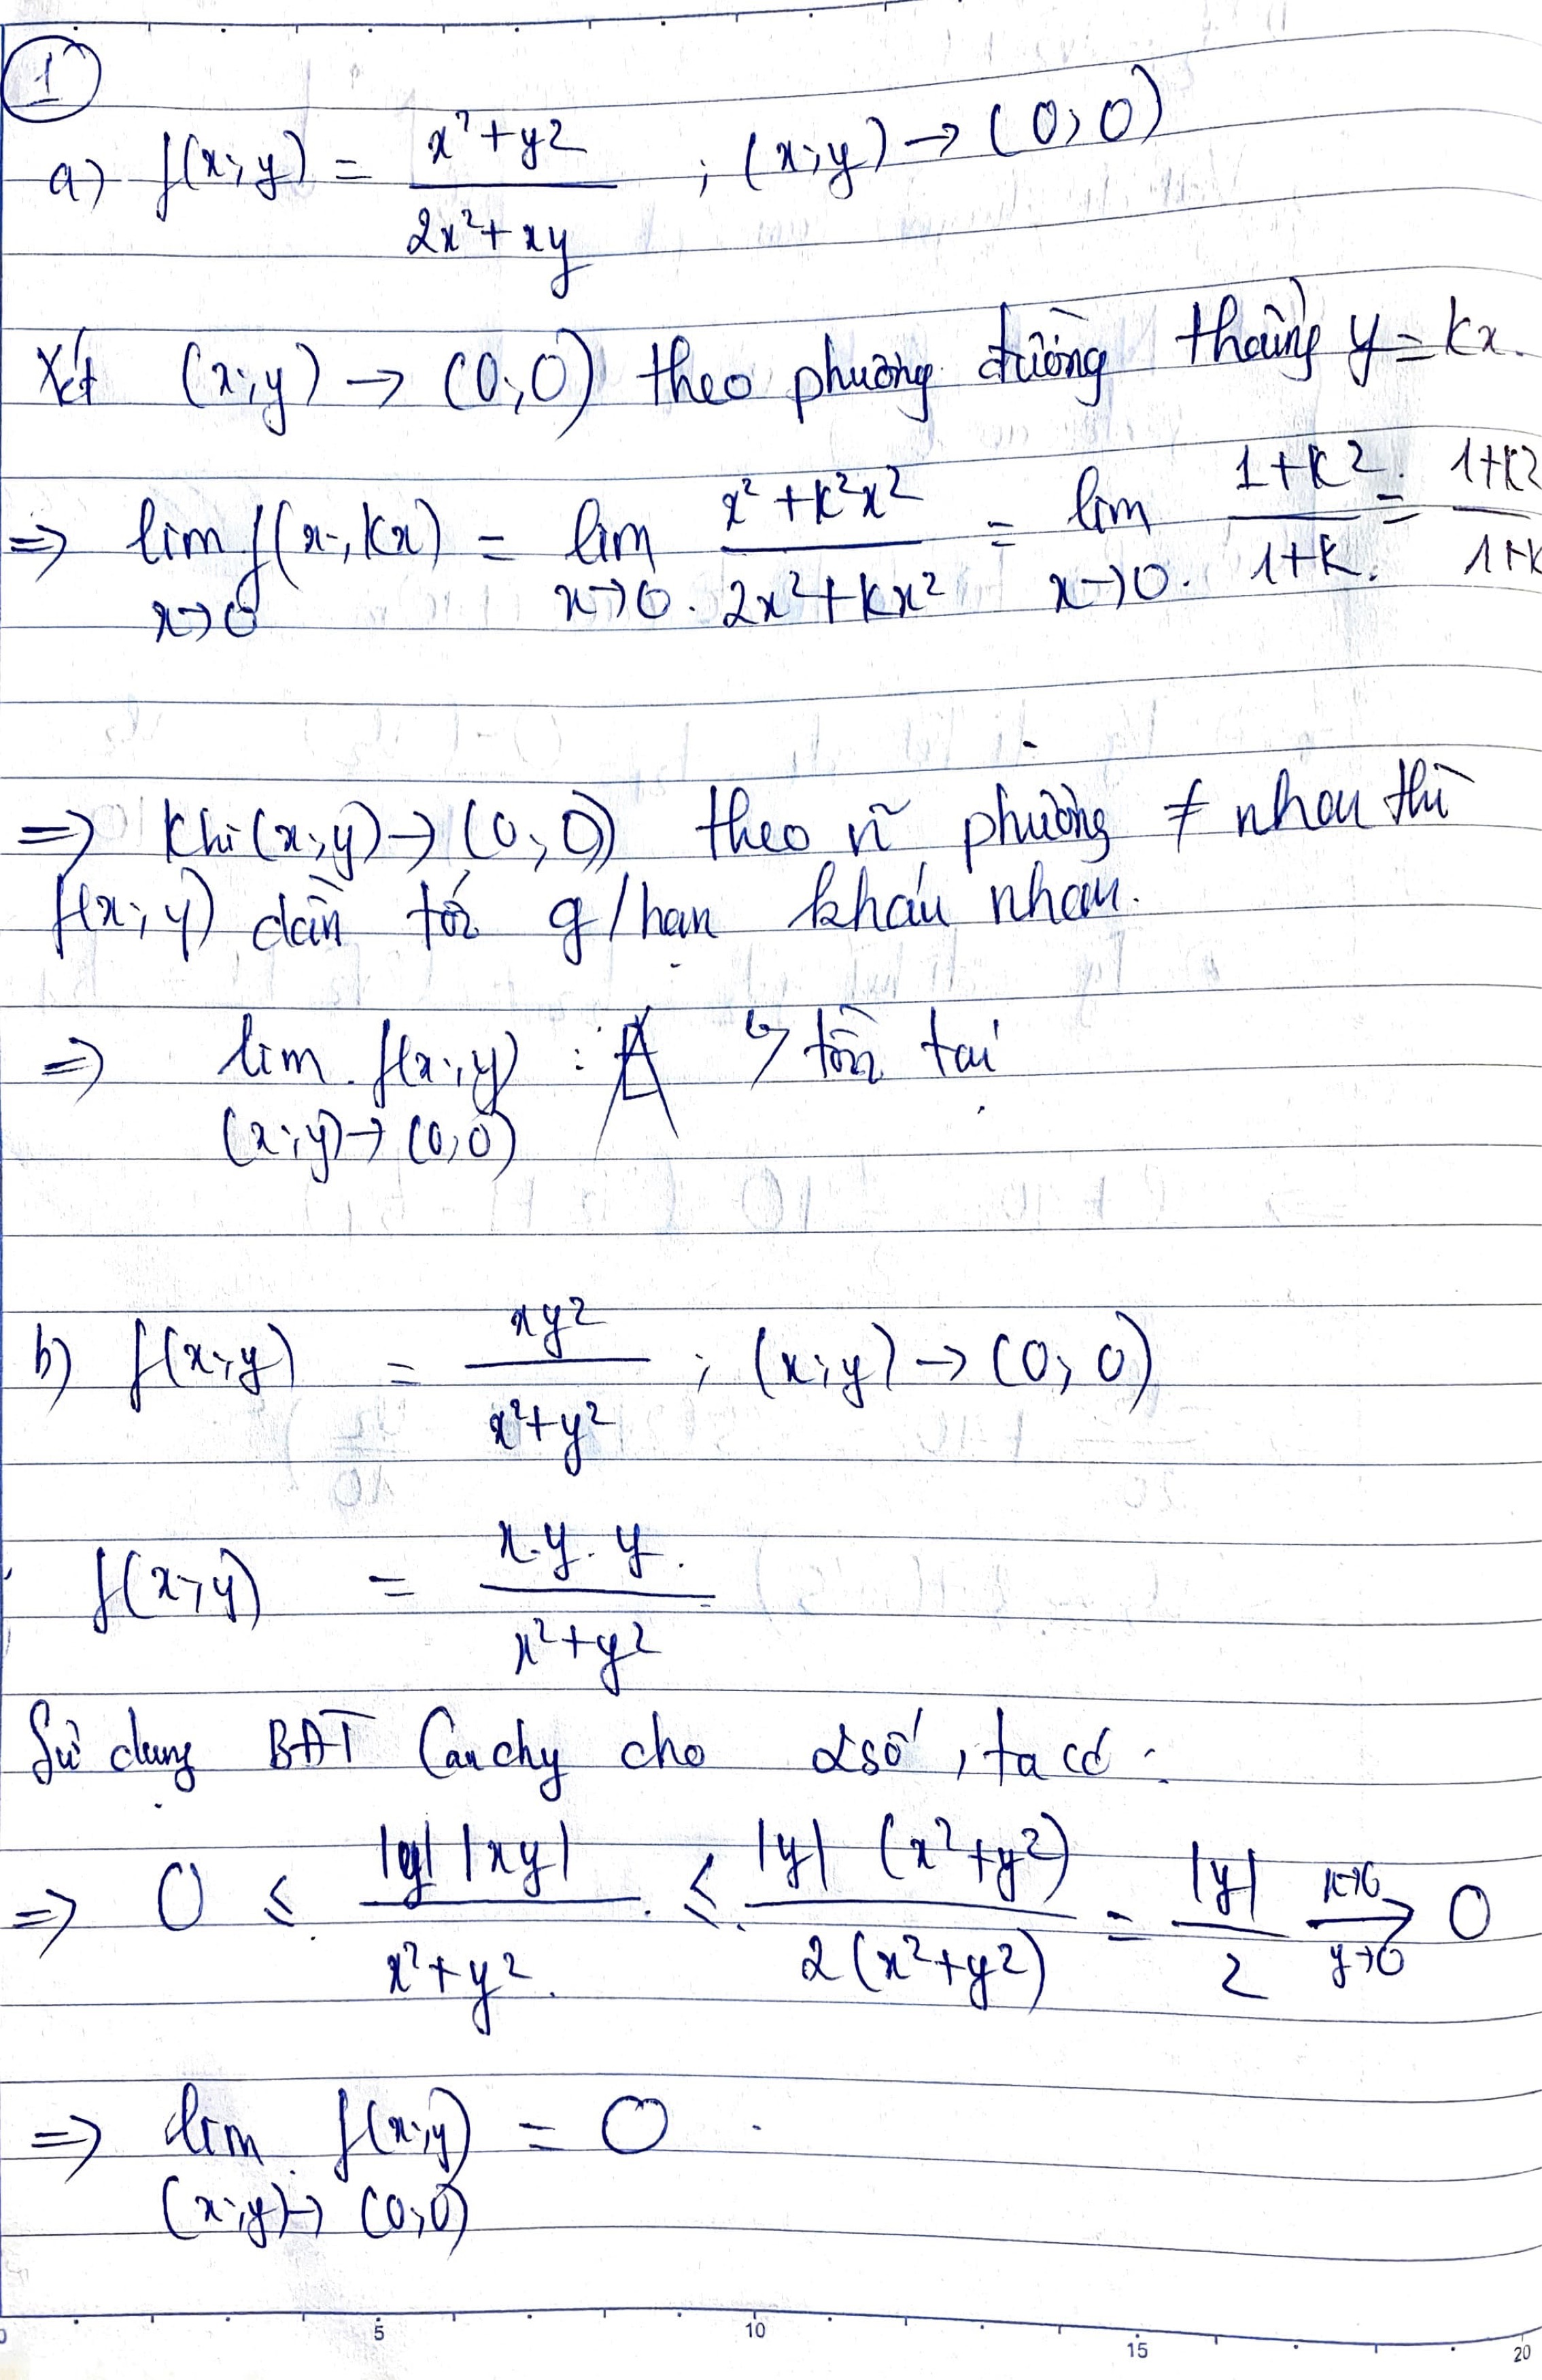 1
a) f(x;y) = x²+y2 / 2x²+xy ; (x;y) → (0;0)
Xét (x;y) → (0;0) theo phương đường thẳng y = kx.
=> lim x→0 f(x;kx) = lim x→0 x²+k²x² / 2x²+kx² = lim x→0 1+k² / 1+k = 1+k² / 1+k
=> Khi (x;y) → (0;0) theo n~ phương ≠ nhau thì
f(x;y) dần tới g/hạn khác nhau.
=> lim (x;y)→(0;0) f(x;y) : ∄ ↳ tồn tại
b) f(x;y) = xy² / x²+y² ; (x;y) → (0;0)
f(x;y) = x.y.y / x²+y²
Sử dụng BĐT Cauchy cho 2 số, ta có:
=> 0 ≤ |y| |xy| / x²+y² ≤ |y| (x²+y²) / 2(x²+y²) = |y| / 2 x→0 → y→0 0
=> lim (x;y)→(0;0) f(x;y) = 0
0 5 10 15 20